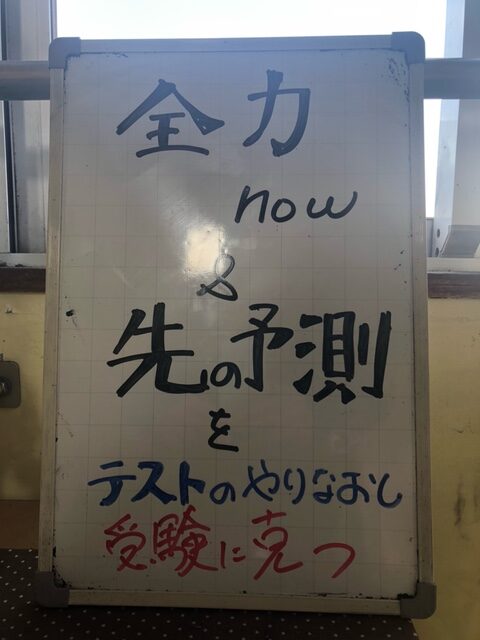 全力
now
&
先の予測
を
テストのやりなおし
受験に克つ